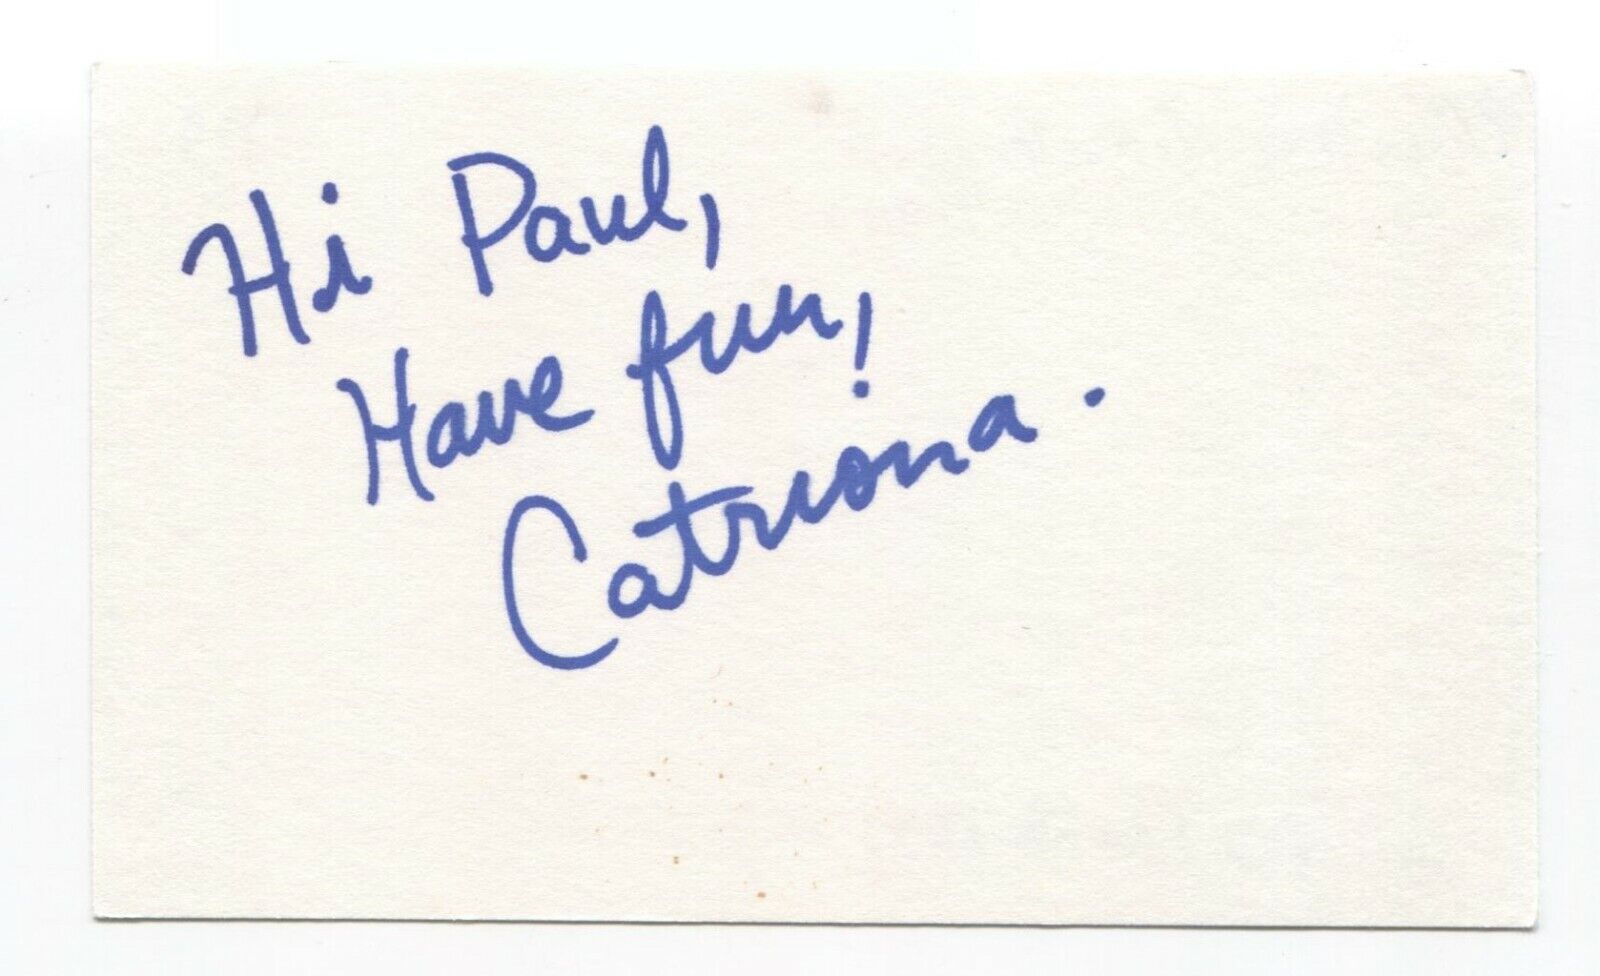 Hi Paul,
Have fun!
Catriona.